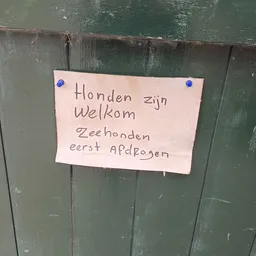 Honden zijn
Welkom
Zeehonden
eerst Afdrogen